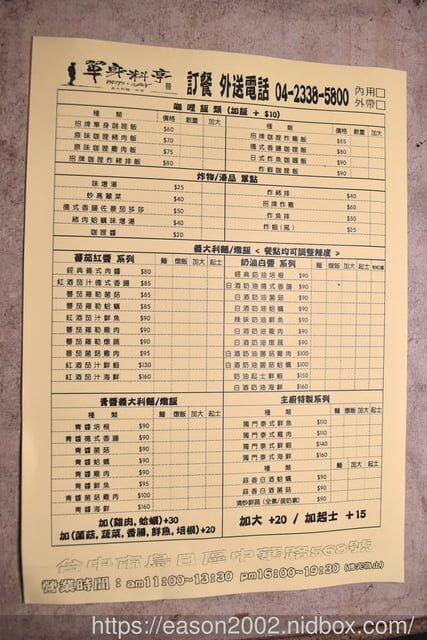 單身料亭
訂餐 外送電話 04-2338-5800 內用□
外帶□
咖哩飯類 (加飯 + $10)
種類 價格 數量 加大 種類 價格 數量 加大
招牌單身咖哩飯 $60 招牌咖哩炸雞飯 $85
原味咖哩豬肉飯 $70 德式香腸咖哩飯 $80
原味咖哩雞肉飯 $75 日式炸魚咖哩飯 $90
招牌咖哩炸豬排飯 $80 炸蝦咖哩飯 $90
炸物/湯品 單點
味增湯 $25 炸豬排 $40
炒高麗菜 $40 招牌炸雞 $60
德式香腸佐蕃茄莎莎 $50 炸魚排 $50
豬肉蛤蠣味增湯 $40 炸蝦(尾) $25
咖哩醬 $20
義大利麵/燉飯 < 餐點均可調整辣度 >
蕃茄紅醬 系列 麵 燉飯 加大 起士 奶油白醬 系列 麵 燉飯 加大 起士
經典義式肉醬 $80 經典奶油培根 $90
紅酒茄汁德式香腸 $85 白酒奶油德式香腸 $90
蕃茄羅勒菌菇 $85 白酒奶油菌菇 $90
蕃茄羅勒蛤蠣 $85 白酒奶油蛤蠣 $90
紅酒茄汁鮮魚 $90 辣味奶油鮮魚 $90
蕃茄羅勒雞肉 $90 白酒奶油雞肉 $90
蕃茄羅勒燉蔬 $90 白酒奶油燉蔬 $90
蕃茄菌菇雞肉 $95 白酒奶油菌菇雞肉 $100
紅酒茄汁鮮蝦 $130 白酒奶油菌菇蛤蠣 $100
紅酒茄汁海鮮 $160 奶油起士鮮蝦 $150
白酒奶油海鮮 $160
青醬義大利麵/燉飯 主廚特製系列
種類 麵 燉飯 加大 起士 種類 麵 燉飯 加大 起士
青醬培根 $90 獨門泰式鮮魚 $110
青醬德式香腸 $90 獨門泰式雞肉 $110
青醬菌菇 $90 獨門泰式鮮蝦 $150
青醬蛤蠣 $90 獨門泰式海鮮 $160
青醬雞肉 $90 種類 麵 加大 起士
青醬鮮魚 $95 蒜香白酒蛤蠣 $90
青醬菌菇雞肉 $100 蒜香白酒菌菇 $90
青醬海鮮 $160 清炒鮮蔬(全素/蛋奶素) $90
加(雞肉,蛤蠣)+30 加大 +20 / 加起士 +15
加(菌菇,蔬菜,香腸,鮮魚,培根)+20
台中市烏日區中華路568號
營業時間:am11:00~13:30 pm16:00~19:30
https://eason2002.nidbox.com/